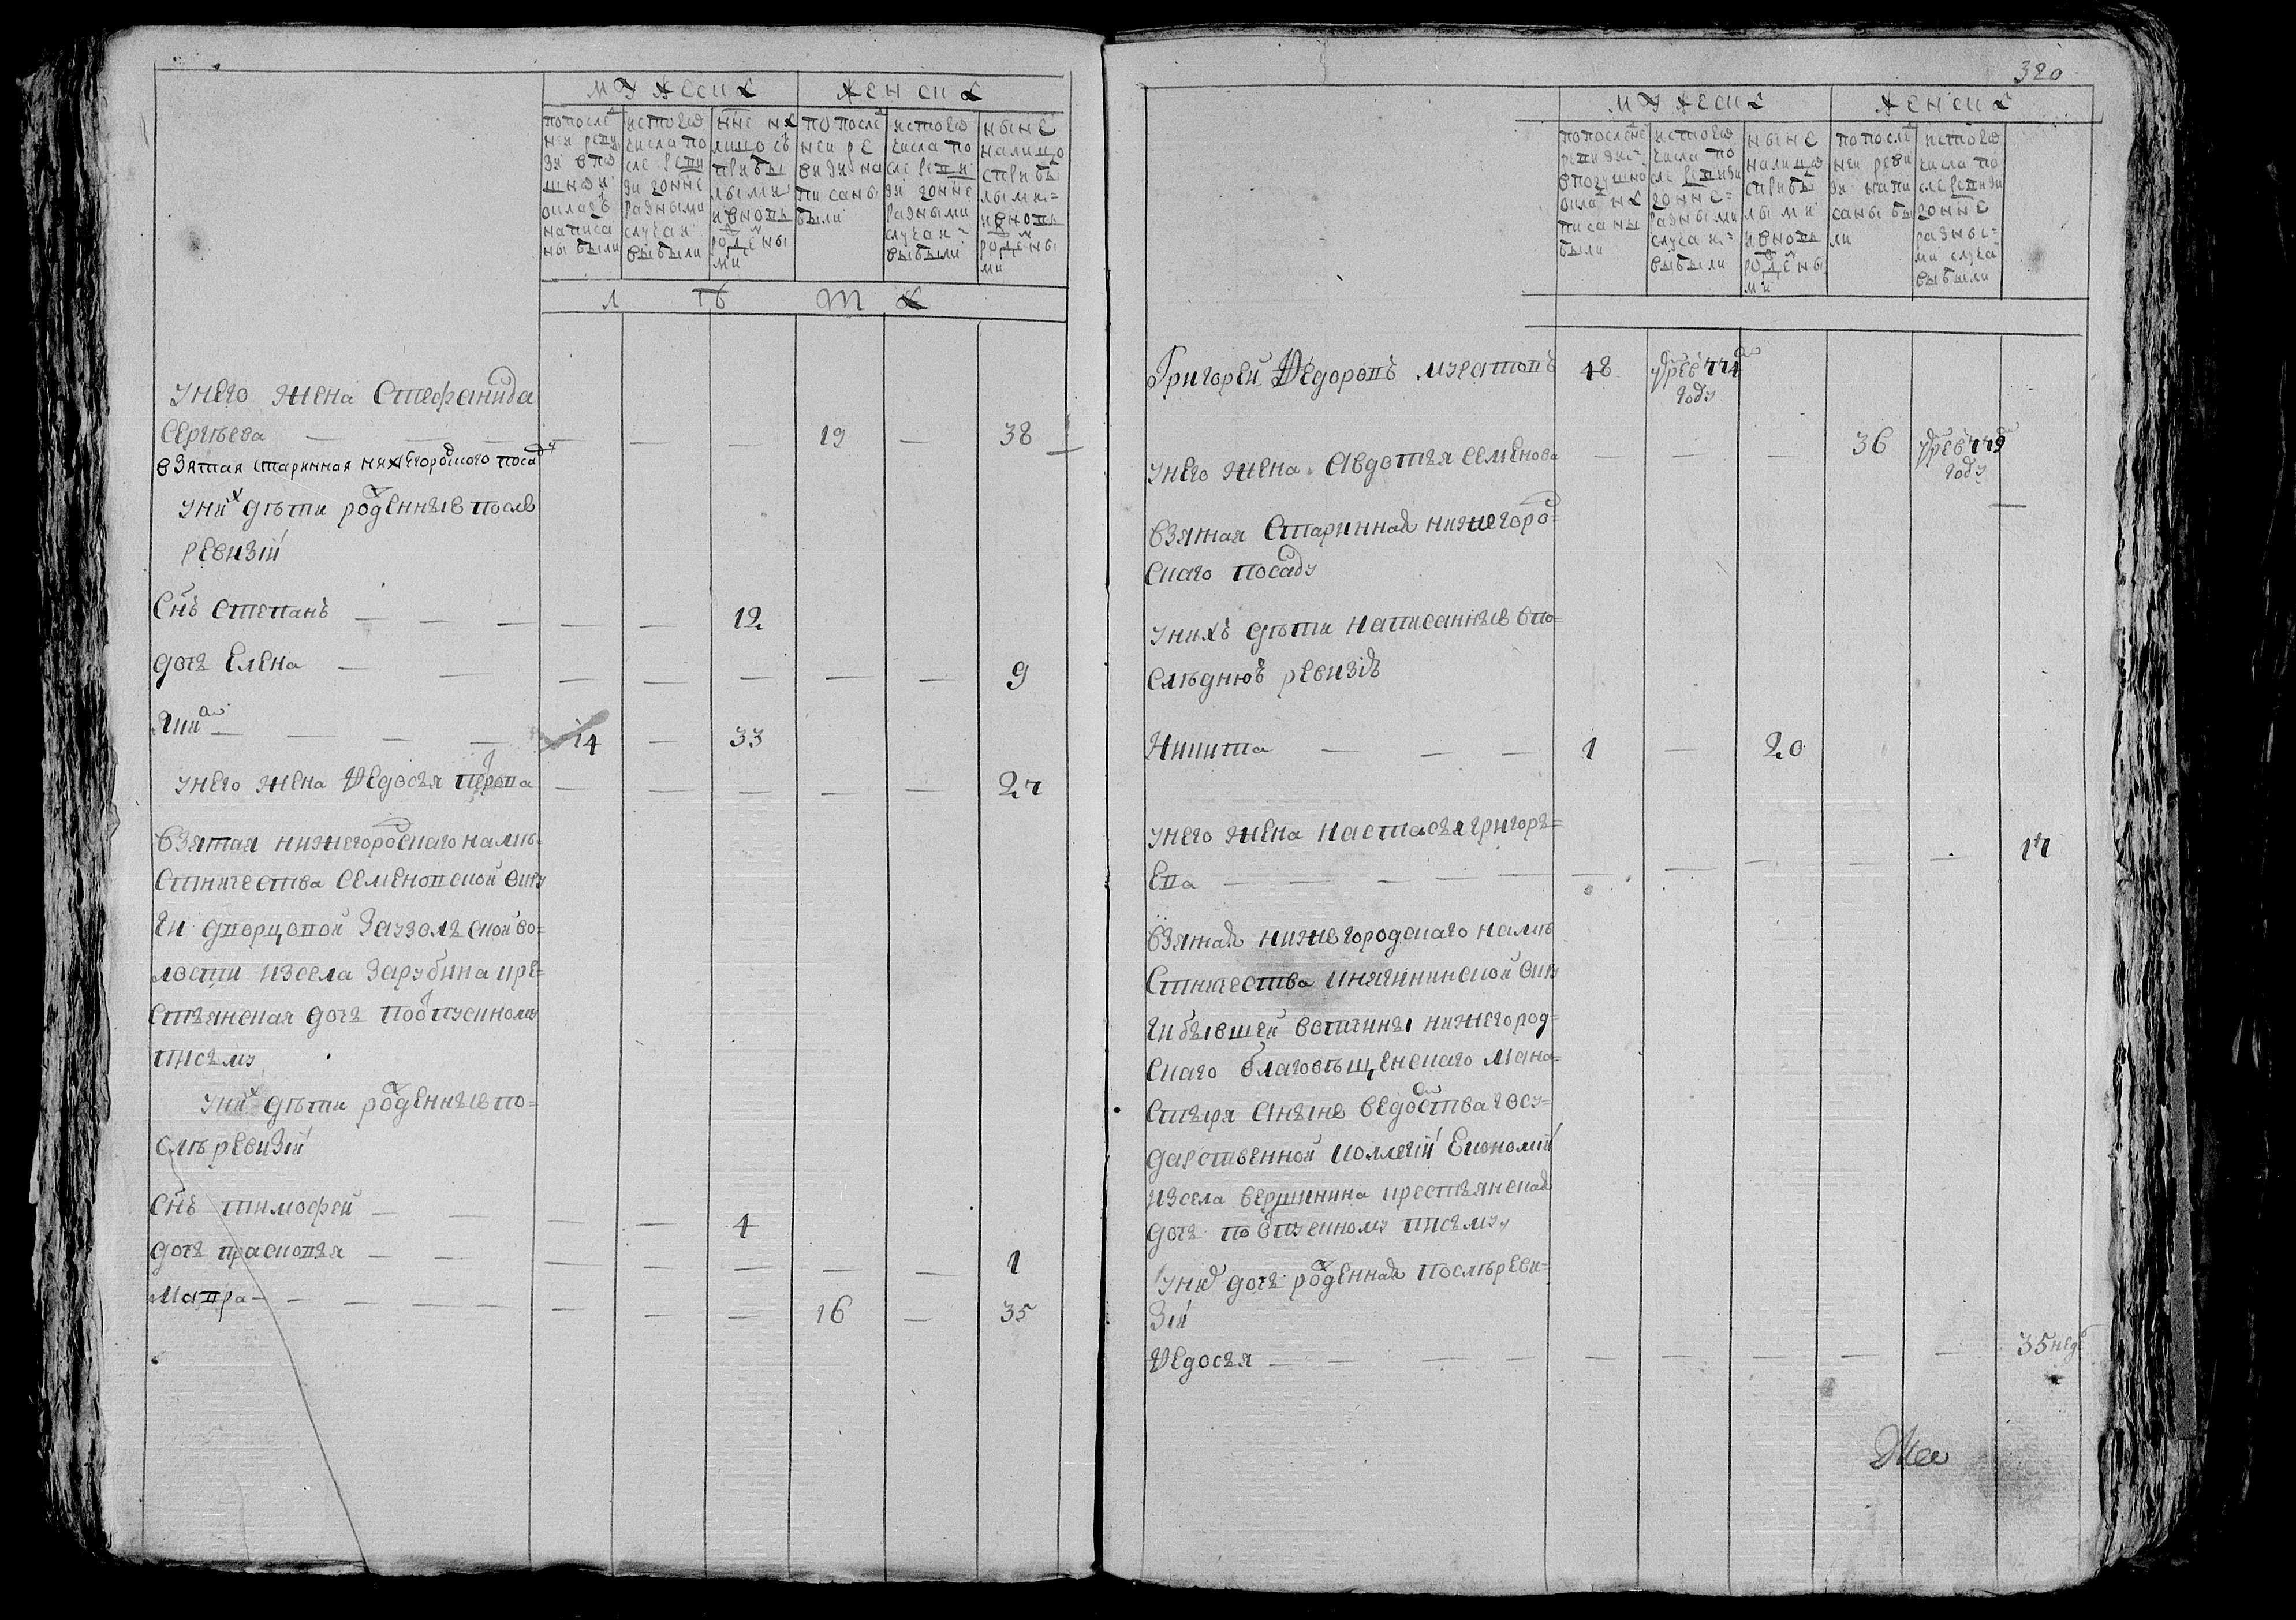 мужеска женска
попосле­дней ревизи впо­душной окладъ написа­ны были
истого числа по­сле ревизи доннѣ разными случаи выбыли
ннѣ на лицо съ прибылыми ивновь рождеными
по последней ревизи написаны были
истого числа после ревизи доннѣ разными случаи выбыли
нынѣ налицо сприбылыми ивновь рождеными
л ѣ т а
унего жена Стефанида
Сергѣева — — — — — — 19 — 38
взятая старинная нижегородского посаду
уних дѣти рожденные послѣ
ревизiи
Снъ Степанъ — — — — — 12
дочь Елена — — — — — — — 9
Яким — — — — 14 — 33
унего жена Ѳедосья Петрова — — — — — 27
взятая нижегородскаго намѣ-
стничества Семеновской окру
ги дворцовой Заузольской во-
лости изсела Зарубина кре-
стьянская дочь поотпускному
писъму
уних дѣти рожденные по-
слѣ ревизiи
Снъ тимофей — — — — 4
дочь прасковья — — — — — — — 1
Мавра — — — — — — — 16 — 35
320
мужеска женска
попоследне ревизи вподушно оклад написаны были
истого числа по сле ревизи доннѣ разными случаи выбыли
нынѣ налицо сприбылыми ивновь рождеными
по последней ревизи написаны были
истого числа после ревизи доннѣ разными случа выбыли
Григорей Ѳедоровъ муратовъ 48 умре в 774 году
унего жена Авдотья Семенова — — — 36 умре в 779 году
взятая Старинная нижегород-
скаго посаду
унихъ дѣти написанные впо-
слѣднюю ревизiю
Никита — — — 1 — 20
унего жена настасья григорь-
ева — — — — — — — — — — 17
взятая нижегородскаго намѣ
стничества княгининской окру
ги бывшей вотчины нижегород-
скаго благовѣщенскаго мана-
стыря анынѣ ведомства госу-
дарственной коллегiи Економiи
изсела вершинина крестьянская
дочь поотпускному писъму
уних дочь рожденная послѣреви-
зiи
Ѳедосья — — — — — — — — — 35 нед